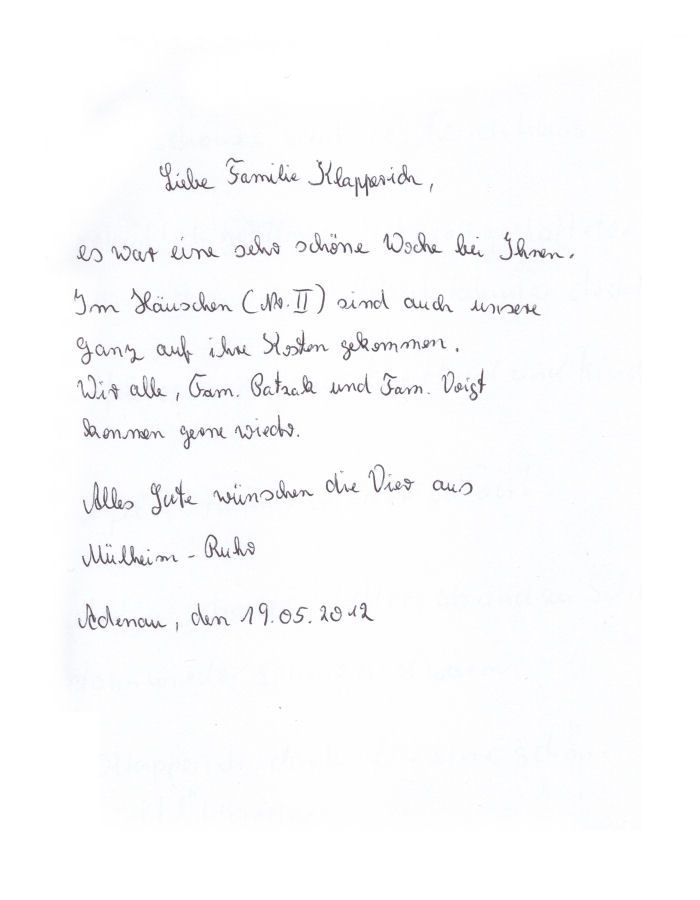 Liebe Familie Klapperich,
es war eine sehr schöne Woche bei Ihnen.
Im Häuschen (Nr. II) sind auch unsere
ganz auf ihre Kosten gekommen.
Wir alle, Fam. Patzak und Fam. Voigt
kommen gerne wieder.
Alles Gute wünschen die Vier aus
Mülheim - Ruhr
Adenau, den 19.05.2012